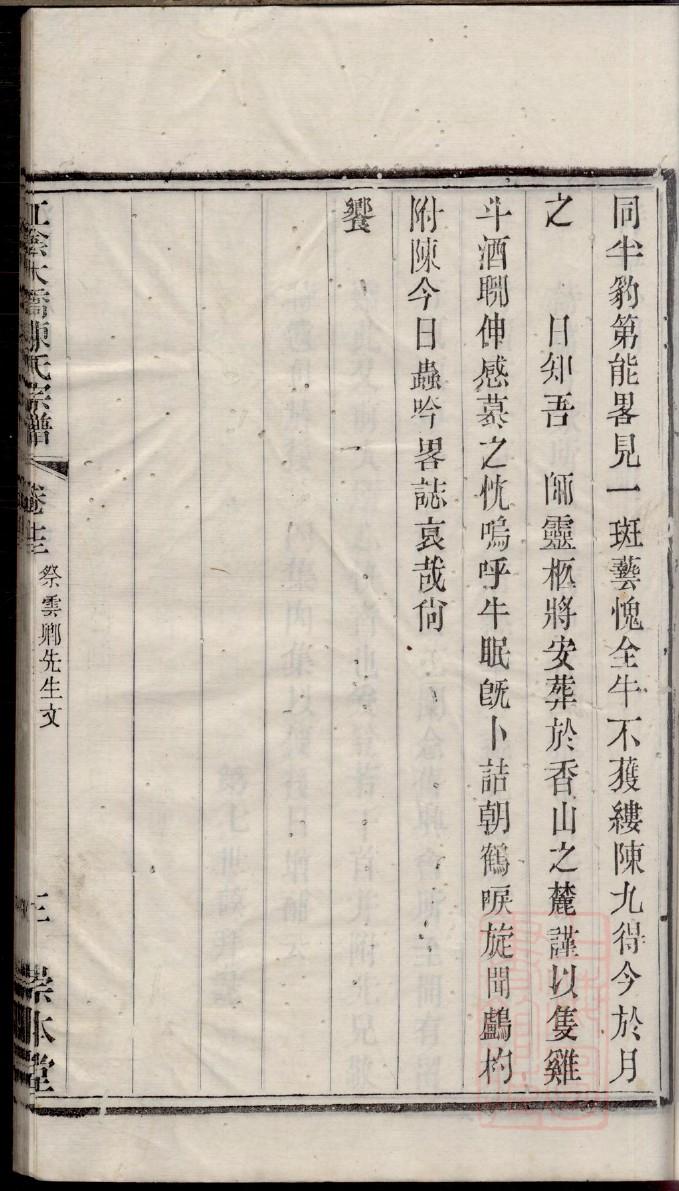 同半豹第能畧見一斑藝愧全牛不獲縷陳九得今於月
之　　日知吾　師靈柩將安葬於香山之麓謹以隻雞
斗酒聊伸感慕之忱嗚呼牛眠旣卜詰朝鶴唳旋聞鸕杓
附陳今日蟲吟畧誌哀哉尙
饗
江陰大橋陳氏宗譜
卷
祭雲卿先生文
三
崇本堂